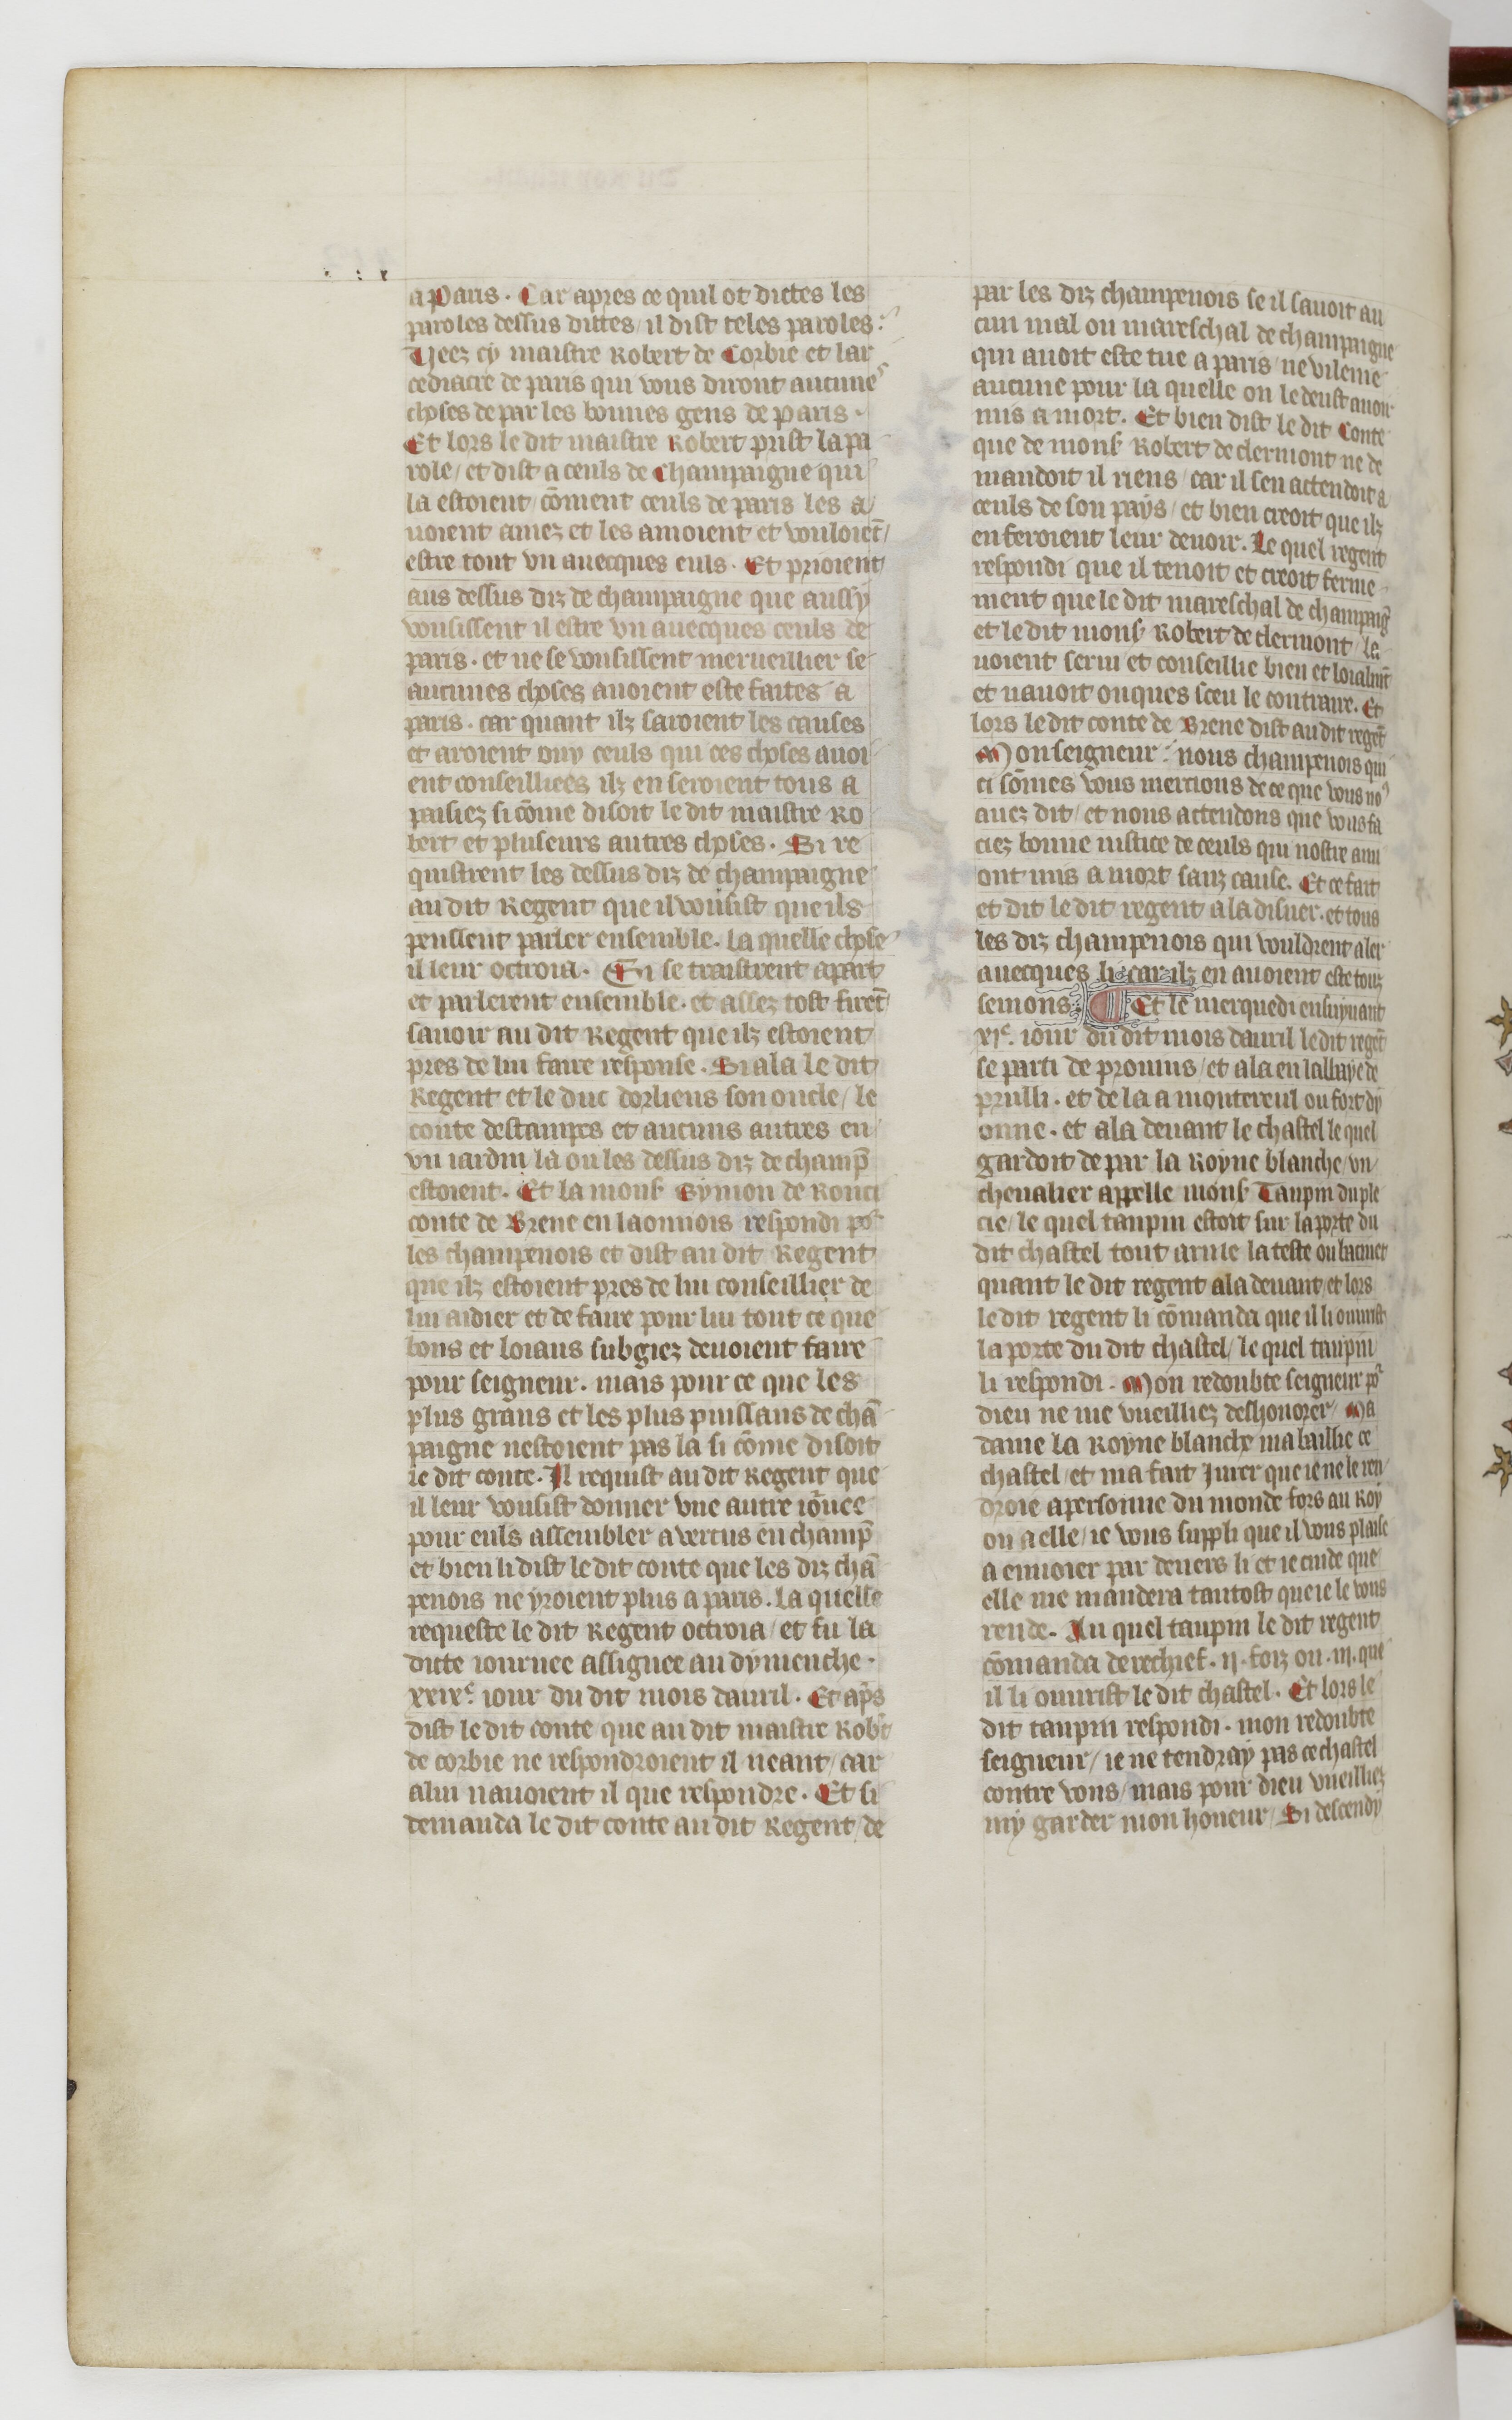 a Paris . Car apres ce quil ot dictes les
paroles dessus dittes / il dist teles paroles :
Veez cy maistre Robert de Corbie et lar
cediacre de paris qui vous diront aucunes
choses de par les bonnes gens de paris .
Et lors le dit maistre Robert prist la pa
role / et dist a ceuls de Champaigne qui
la estoient / cōment ceuls de paris les a
uoient amez et les amoient et vouloiēt
estre tout vn auecques euls . Et prioient
aus dessus diz de champaigne que aussy
vousissent il estre vn auecques ceuls de
paris . et ne se vousissent merueillier se
aucunes choses auoient este faites a
paris . car quant ilz saroient les causes
et aroient ouy ceuls qui ces choses auoi
ent conseilliees ilz en seroient tous a
paisiez si cōme disoit le dit maistre Ro
bert et pluseurs autres choses . Si re
quistrent les dessus diz de champaigne
au dit Regent que il vousist que ils
peussent parler ensemble . la quelle chose
il leur octroia . Si se traistrent a part
et parlerent ensemble . et assez tost firēt
sauoir au dit Regent que ilz estoient
pres de lui faire response . Si ala le dit
Regent et le duc dorliens son oncle / le
conte destampes et aucuns autres en
vn iardin la ou les dessus diz de champ̄
estoient . Et la mons̄ Symon de Rouci
conte de Brene en laonnois respondi po᷑
les champenois et dist au dit Regent
que ilz estoient pres de lui conseillier de
lui aidier et de faire pour lui tout ce que
bons et loiaus subgiez deuoient faire
pour seigneur . mais pour ce que les
plus grans et les plus puissans de chā
paigne nestoient pas la si cōme disoit
le dit conte . Il requist au dit Regent que
il leur vousist donner vne autre io᷑nee
pour euls assembler a vertus en champ̄
et bien li dist le dit conte que les diz chā
penois ne yroient plus a paris . la quelle
requeste le dit Regent octroia / et fu la
dicte iournee assignee au dymenche .
xxixᵉ. iour du dit mois dauril . Et ap̄s
dist le dit conte que au dit maistre Rob̄t
de corbie ne respondroient il neant / car
a lui nauoient il que respondre . Et si
demanda le dit conte au dit Regent / de
par les diz champenois se il sauoit au
cun mal ou mareschal de champaigne
qui auoit este tue a paris / ne vilenie
aucune pour la quelle on le deust auoir
mis a mort . Et bien dist le dit Conte
que de mons̄ Robert de clermont ne de
mandoit il riens / car il sen actendoit a
ceuls de son pays / et bien creoit que ilz
en feroient leur deuoir . Le quel regent
respondi que il tenoit et creoit ferme
ment que le dit mareschal de champaiḡ
et le dit mons̄ Robert de clermont / la
uoient serui et conseillie bien et loialmēt
et nauoit onques sceu le contraire . Et
lors le dit conte de Brene dist au dit regēt
Monseigneur : nous champenois qui
ci sōmes vous mercions de ce que vous noꝰ
auez dit / et nous actendons que vous fa
ciez bonne iustice de ceuls qui nostre ami
ont mis a mort sanz cause . Et ce fait
et dit le dit regent ala disner . et tous
les diz champenois qui vouldrent aler
auecques li . car ilz en auoient este touz
semons . Et le merquedi ensuyuant
xjᵉ. iour du dit mois dauril le dit regēt
se parti de prouins / et ala en labbaye de
prulli . et de la a monstereul ou fort dy
onne . et ala deuant le chastel le quel
gardoit de par la Royne blanche / vn
cheualier appelle mons̄ Taupin du ple
cie / le quel taupin estoit sur la porte du
dit chastel tout arme la teste ou bacinet
quant le dit regent ala deuant / et lors
le dit regent li cōmanda que il li ouurist
la porte du dit chastel / le quel taupin
li respondi . Mon redoubte seigneur po᷑
dieu ne me vueilliez deshonorer / Ma
dame la Royne blanche ma baillie ce
chastel / et ma fait Jurer que ie ne le ren
droie a personne du monde fors au Roy
ou a elle / ie vous suppli que il vous plaise
a enuoier par deuers li et ie cuide que
elle me mandera tantost que ie le vous
rende . Au quel taupin le dit regent
cōmanda derechief . ij . foiz ou . iij . que
il li ouurist le dit chastel . Et lors le
dit taupin respondi . mon redoubte
seigneur / ie ne tendray pas ce chastel
contre vous / mais pour dieu vueilliez
my garder mon honeur / Si descendy